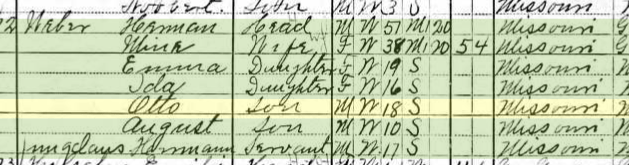 Son M W 3 S Missouri
Weber Herman Head M W 51 M1 20 Missouri G
Wife F W 38 M1 20 5 4 Missouri G
Emma Daughter F W 19 S Missouri
Ida Daughter F W 16 S Missouri
Otto Son M W 18 S Missouri
August Son M W 10 S Missouri
Hermann Servant M W 17 S Missouri